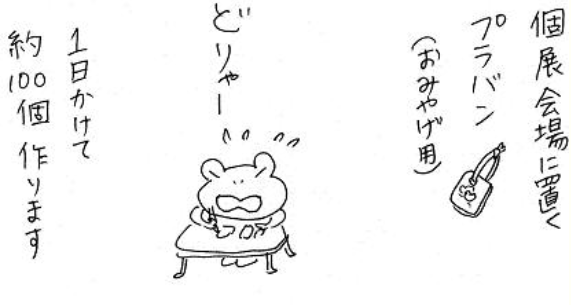 個展会場に置く
プラバン
(おみやげ用)
どりゃー
1日かけて
約100個作ります